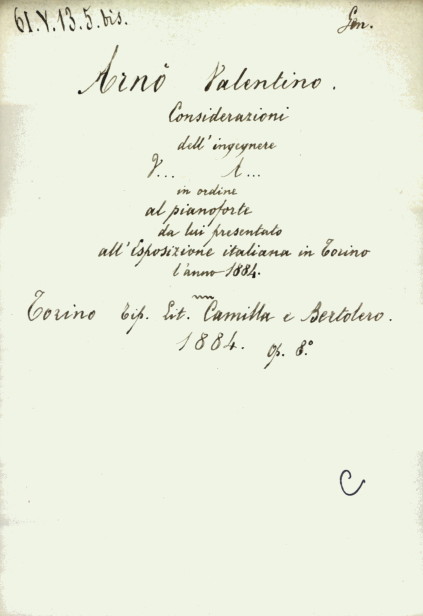 61.V.13.5.bis.
Gen.
Arnò Valentino.
Considerazioni
dell'ingegnere
V... A...
in ordine
al pianoforte
da lui presentato
all'Esposizione italiana in Torino
l'anno 1884.
Torino Tip. Lit. Camilla e Bertolero.
1884. op. 8.º
C